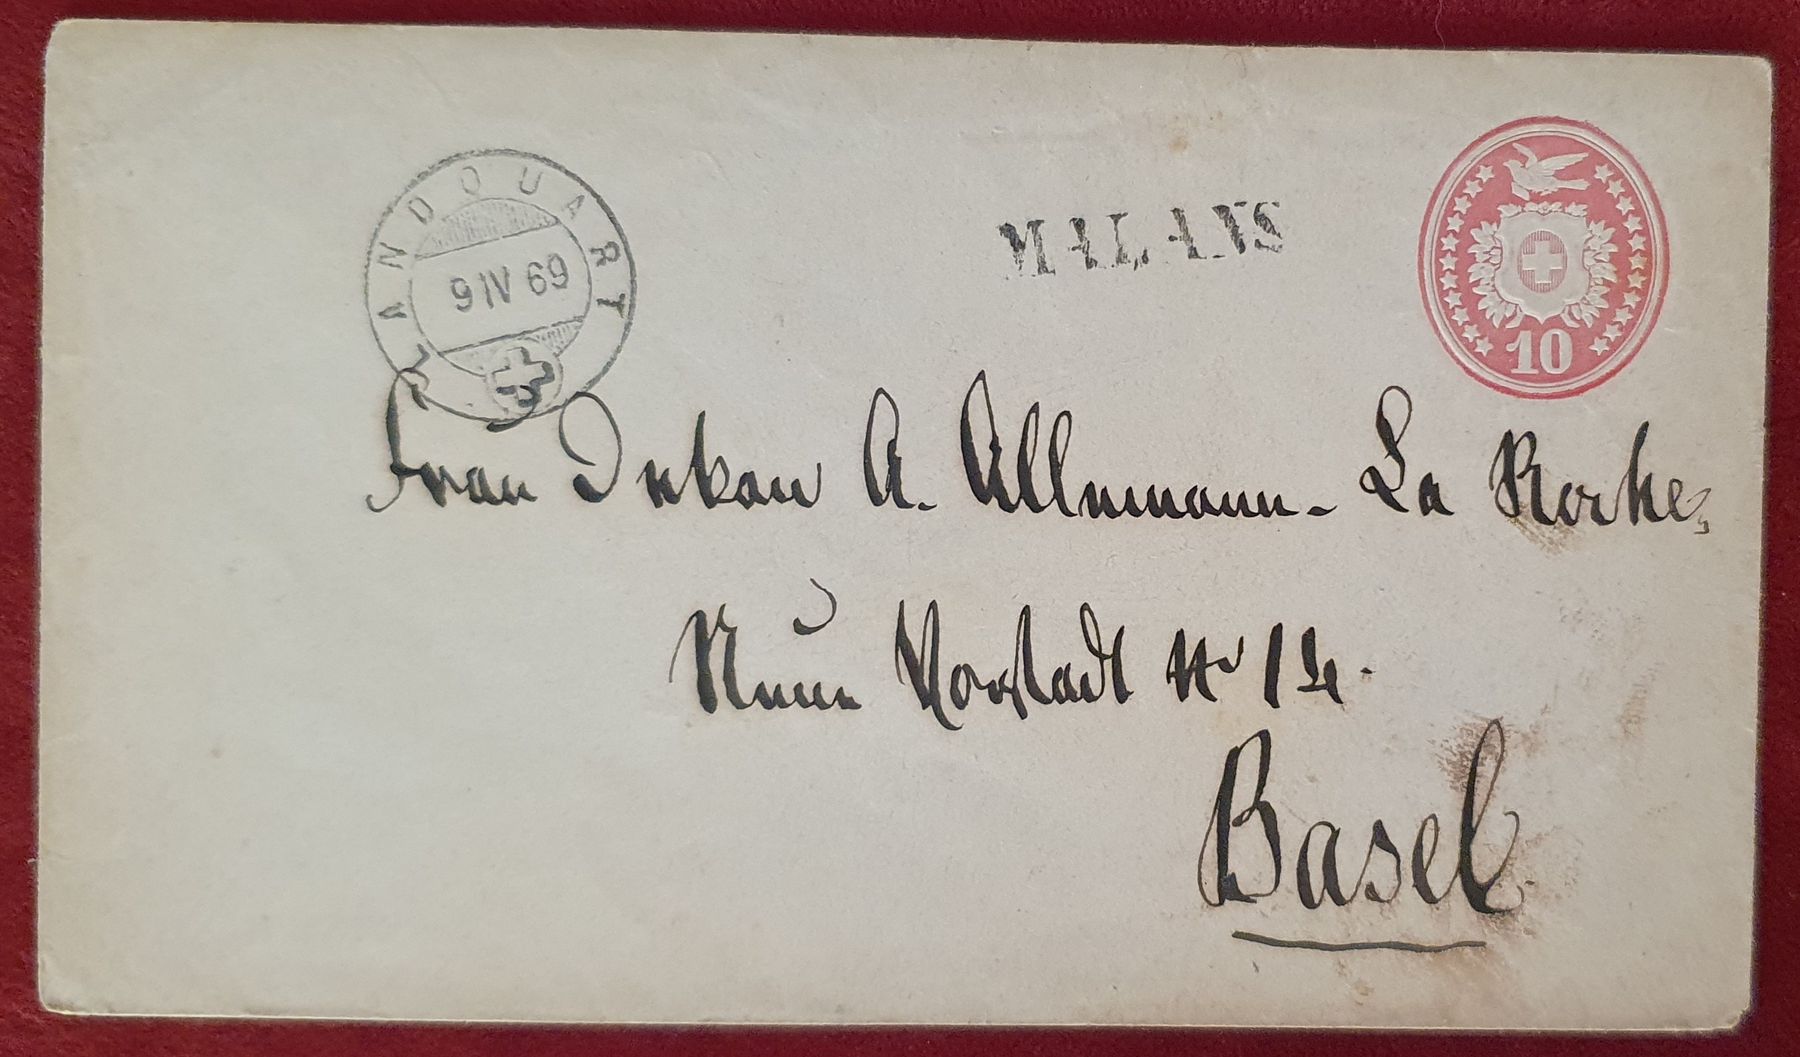 LANDQUART
9 IV 69
MALANS
10
Frau Dekan A. Allemann-La Roche,
Neue Vorstadt No 14.
Basel